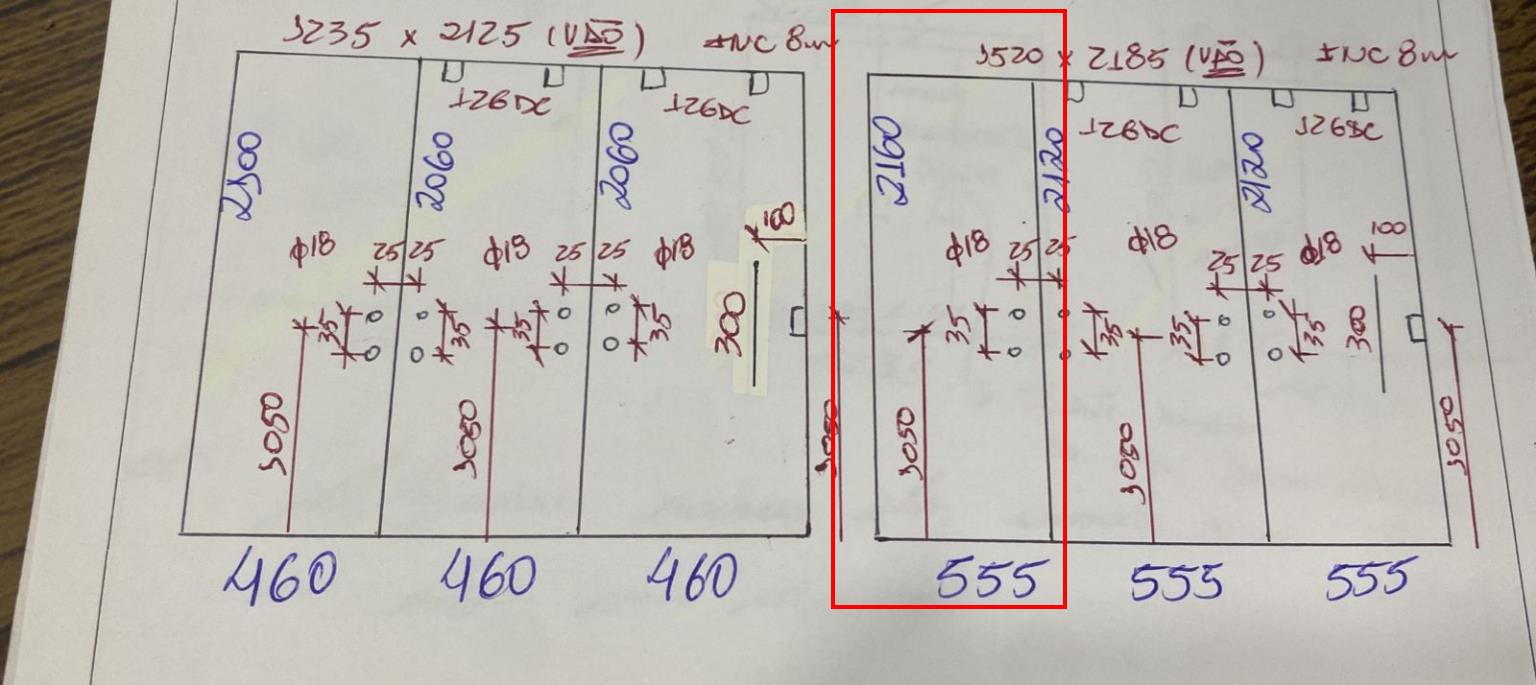 1235 x 2125 (VÃO) INC 8m
1520 x 2185 (VÃO) INC 8m
2100
2060
2060
2160
2120
2120
100
100
φ18
25 25
φ18
25 25
φ18
φ18
25 25
φ18
25 25
φ18
35
35
35
35
35
300
35
35
35
35
300
1050
1050
1050
1050
1050
1050
460 460 460
555 555 555